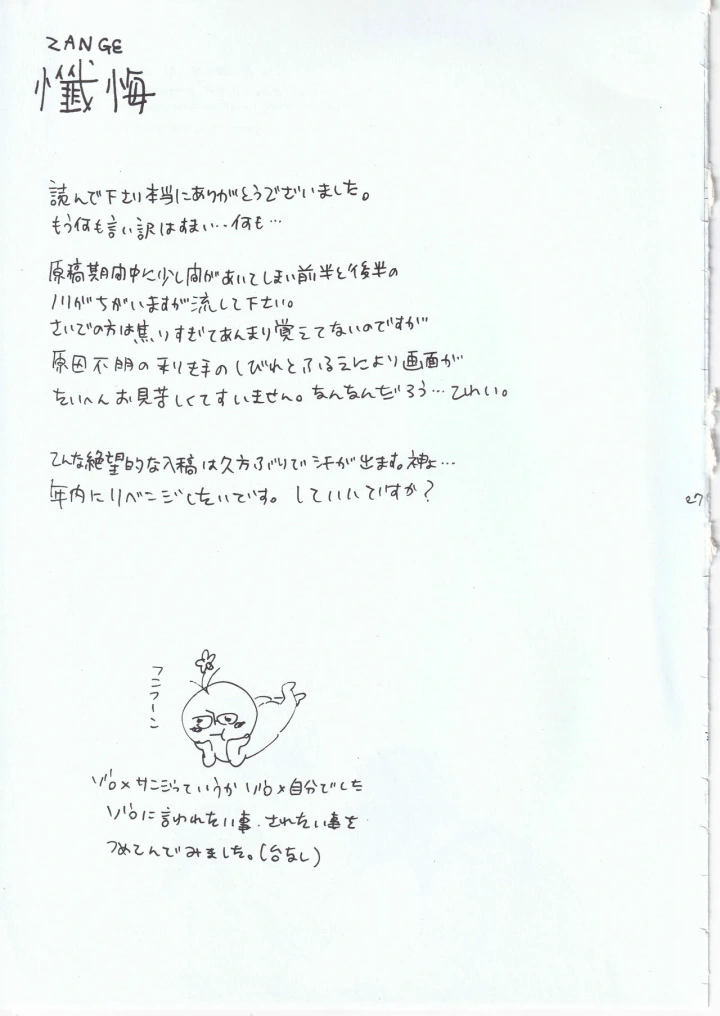 ZANGE
懺悔
読んで下さり本当にありがとうございました。
もう何も言い訳はすまい‥何も…
原稿期間中に少し間があいてしまい前半と後半の
ノリがちがいますが流して下さい。
さいごの方は焦りすぎてあんまり覚えてないのですが
原因不明の利き手のしびれとふるえにより画面が
たいへんお見苦しくてすいません。なんなんだろう…こわい。
こんな絶望的な入稿は久方ぶりで汗が出ます。神よ…
年内にリベンジしたいです。していいですか?
27
フーフーン
ゾロ×サンジっていうかゾロ×自分でした
ゾロに言われたい事、されたい事を
つめこんでみました。(台なし)